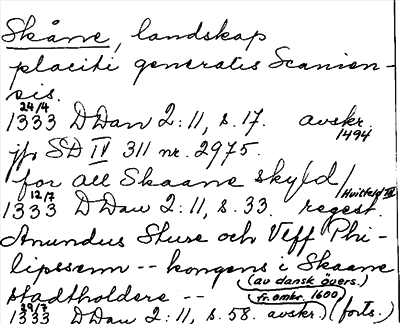 Skåne, landskap
placiti generalis Scanien-
sis.
24/4
1333 DDan 2:11, s. 17. avskr. 1494
jfr SD IV 311 nr. 2975.
for all Skaane skyld / Huitfeld III
12/7
1333 DDan 2:11, s. 33. regest.
Anundus Sture och Veff Phi-
lipssenn -- kongens i Skaane
stadtholdere -- (av dansk övers.) fr. omkr. 1600)
29/7
1333 DDan 2:11, s. 58. avskr.) (forts.)